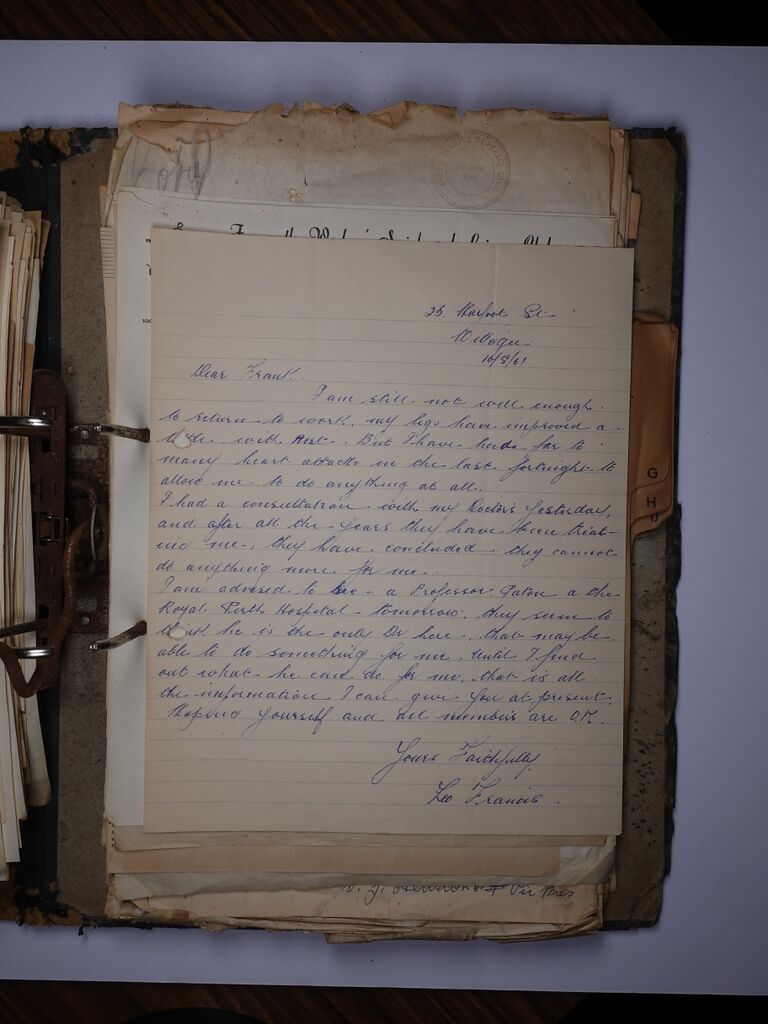 Copy
25. St
Willagee
16/8/61
Dear Frank.
I am still not well enough.
to return to work, my legs have improved a
with Rest. But I have had far to
many heart attacks in the last fortnight to
allow me to do anything at all.
I had a consultation with my Doctors yesterday,
and after all the years they have been treat-
ing me, they have concluded they cannot
do anything more for me.
I am advised to see - a Professor. Saton a the
Royal Perth Hospital tomorrow. they seem to
think he is the only Dr here, that may be
able to do something for me. Until I find
out what he can do for me, that is all
the information I can give you at present.
Hoping yourself and all members are O.K.
Yours Faithfully.
Leo Francis.
G
H
IJ
Vice Pres